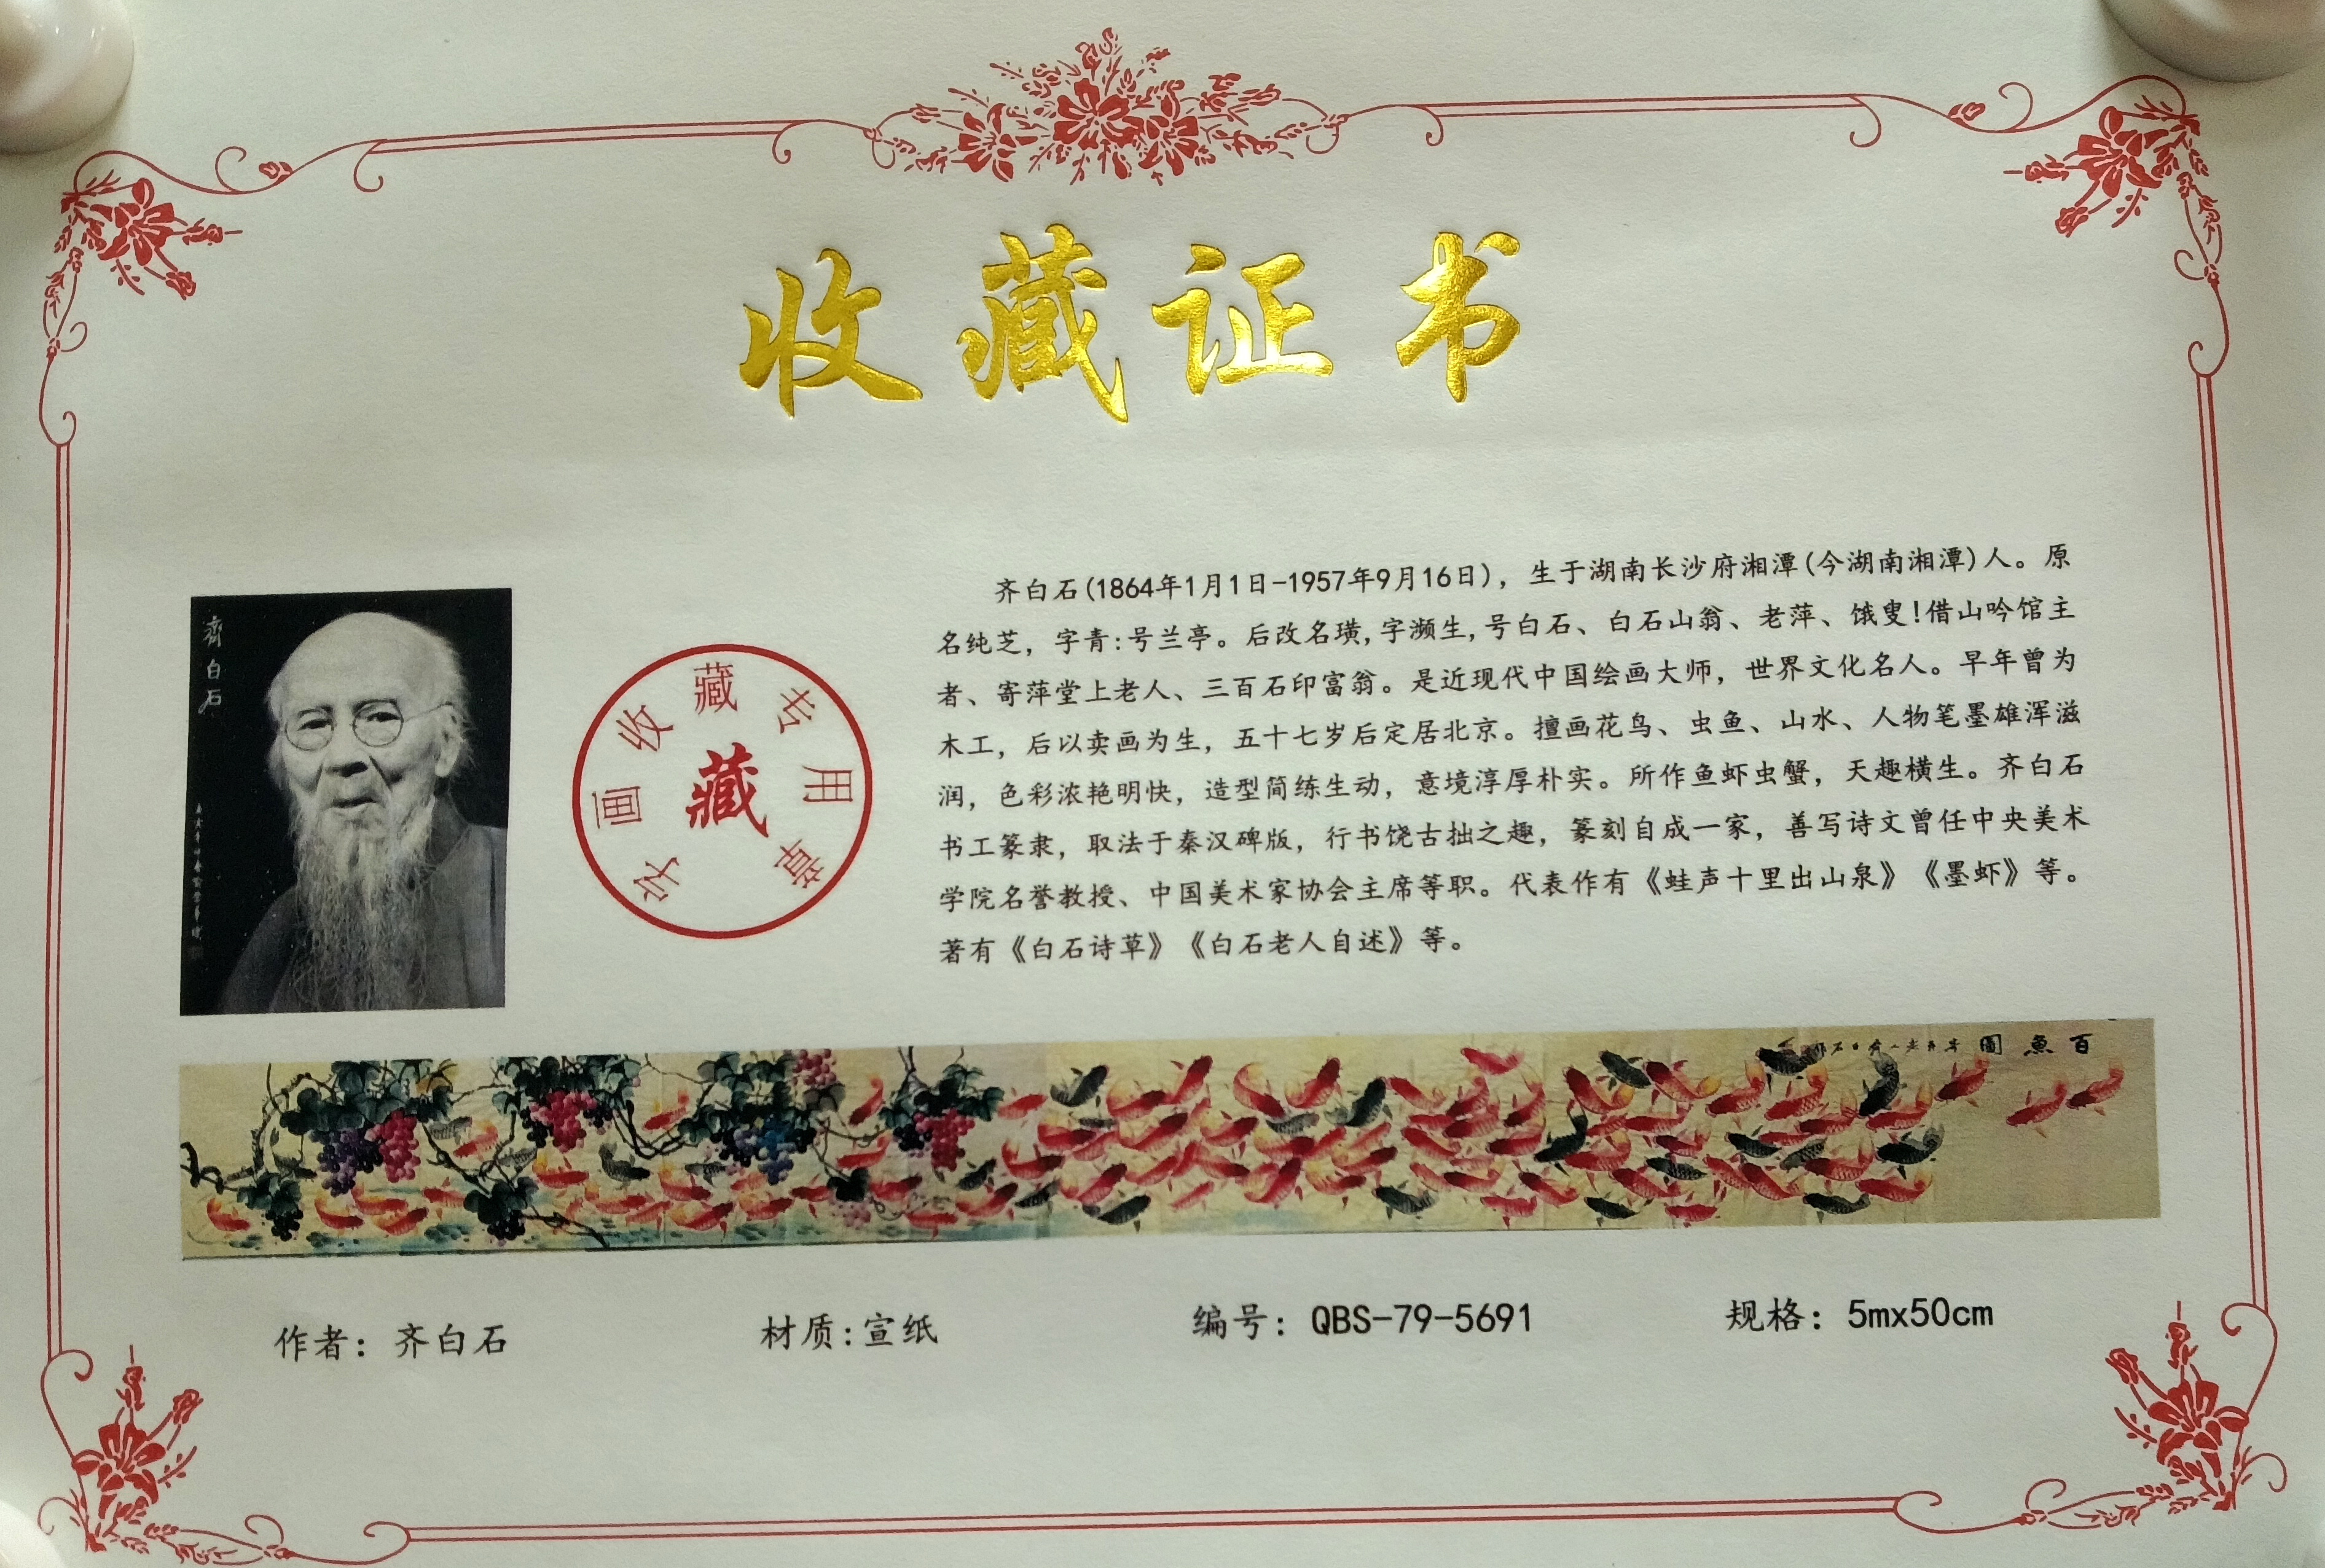 收藏证书
齐白石
字画收藏专用章
藏
齐白石(1864年1月1日-1957年9月16日)，生于湖南长沙府湘潭(今湖南湘潭)人。原
名纯芝，字青:号兰亭。后改名璜,字濒生,号白石、白石山翁、老萍、饿叟!借山吟馆主
者、寄萍堂上老人、三百石印富翁。是近现代中国绘画大师，世界文化名人。早年曾为
木工，后以卖画为生，五十七岁后定居北京。擅画花鸟、虫鱼、山水、人物笔墨雄浑滋
润，色彩浓艳明快，造型简练生动，意境淳厚朴实。所作鱼虾虫蟹，天趣横生。齐白石
书工篆隶，取法于秦汉碑版，行书饶古拙之趣，篆刻自成一家，善写诗文曾任中央美术
学院名誉教授、中国美术家协会主席等职。代表作有《蛙声十里出山泉》《墨虾》等。
著有《白石诗草》《白石老人自述》等。
百魚圖
作者：齐白石
材质:宣纸
编号：QBS-79-5691
规格：5mx50cm